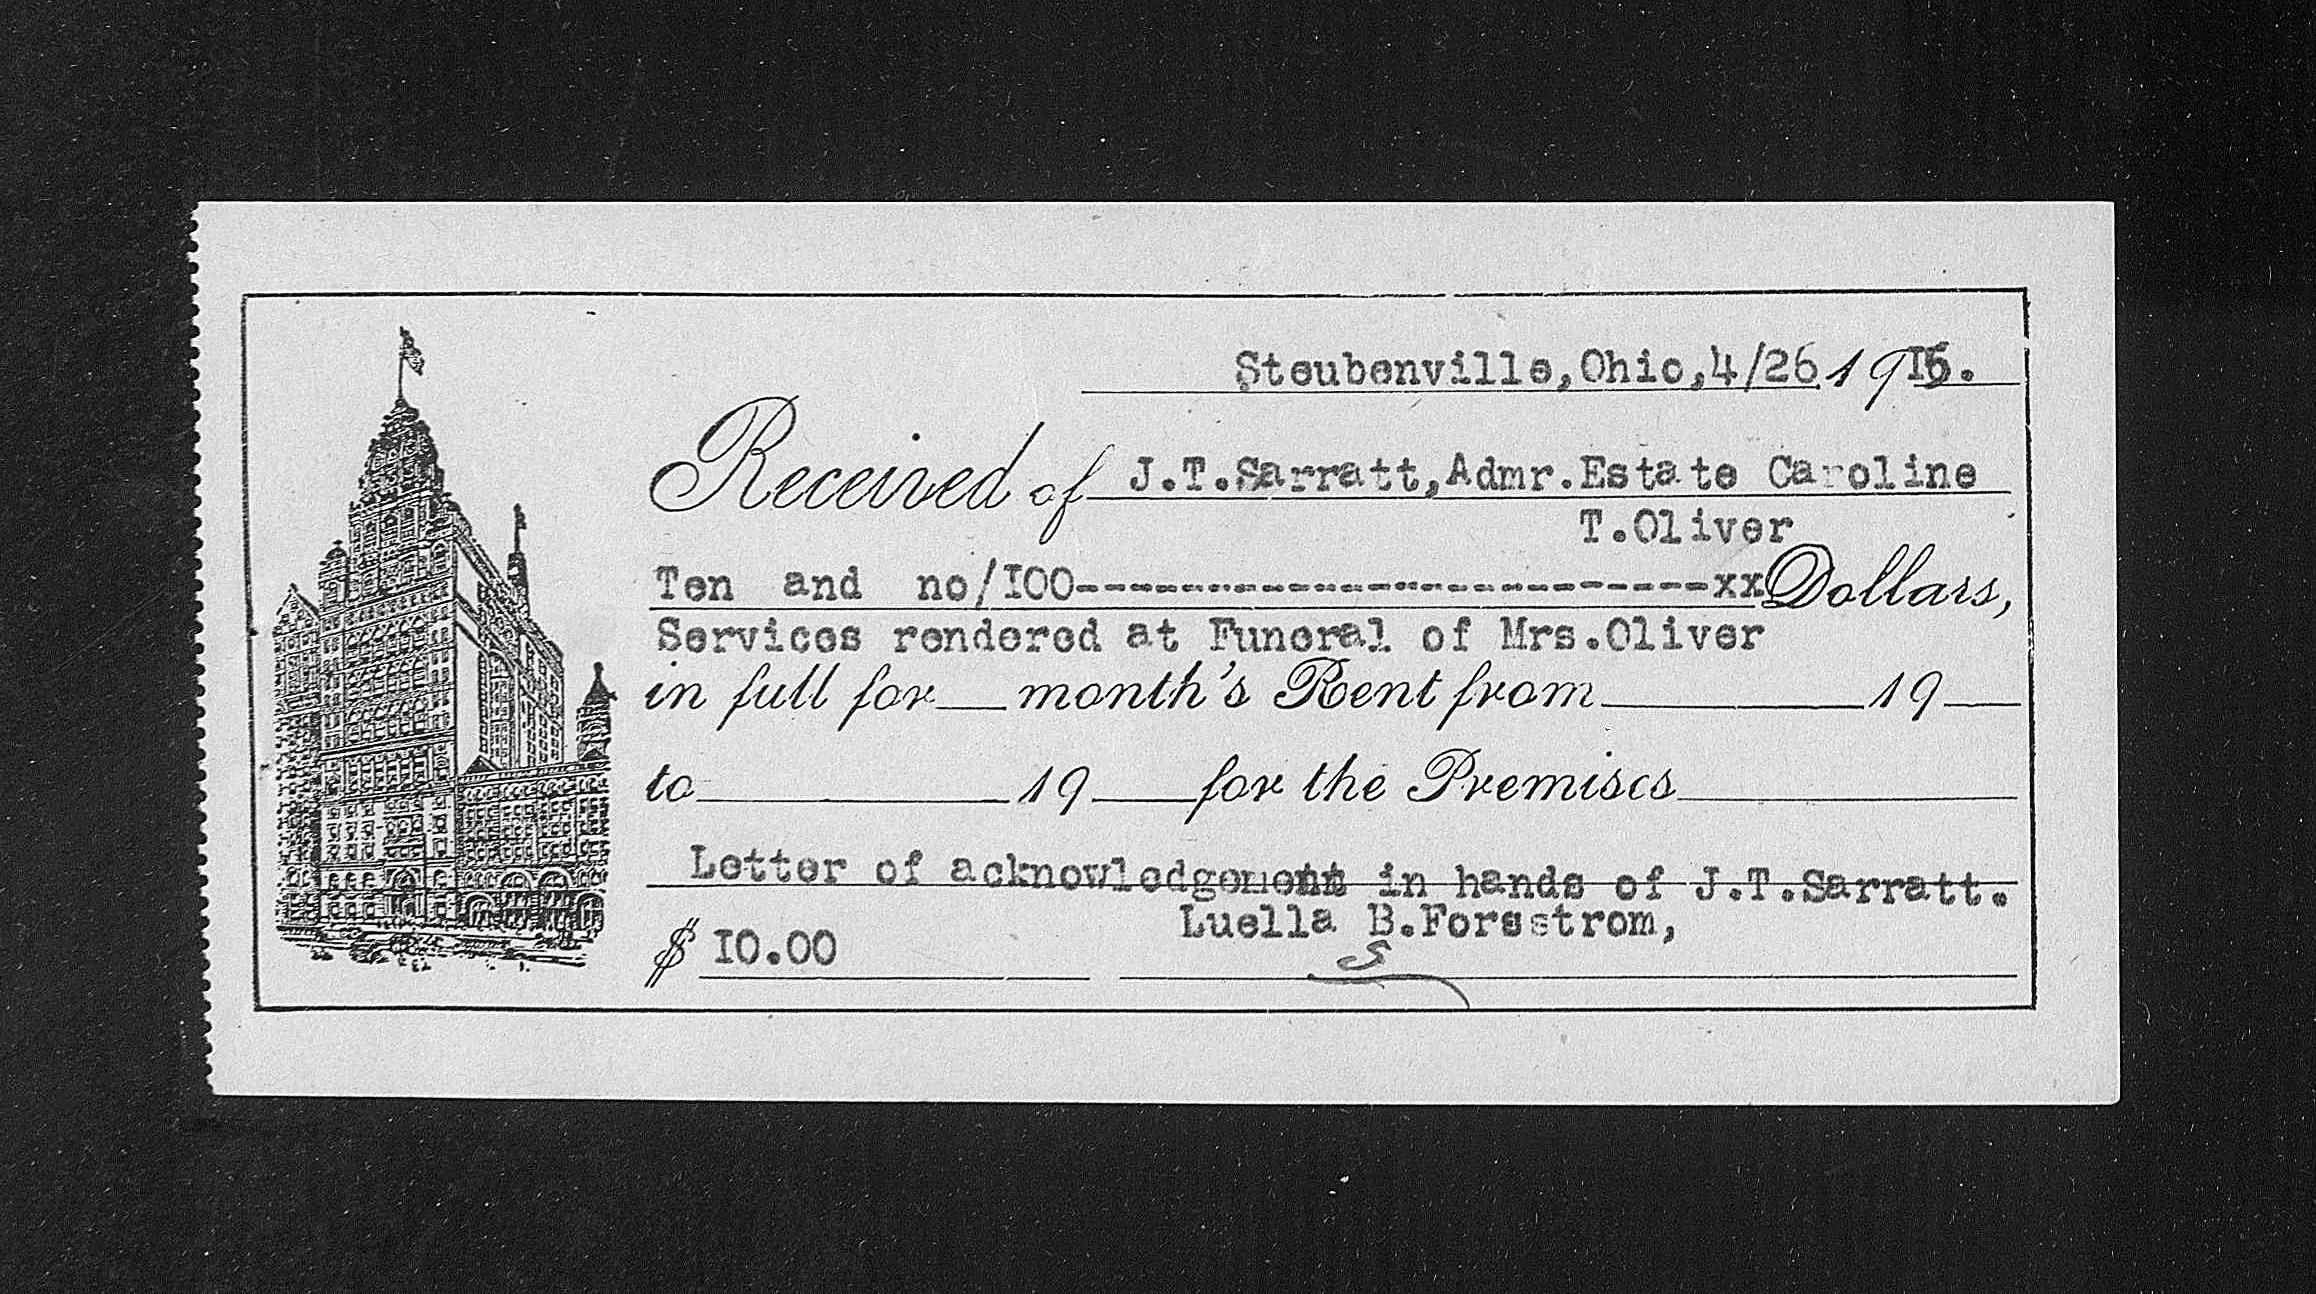 Steubenville,Ohio,4/26 1915.
Received of J.T.Sarratt,Admr.Estate Caroline
T.Oliver
Ten and no/IOO------------------------------xx Dollars,
Services rendered at Funeral of Mrs.Oliver
in full for ___ month's Rent from ___ 19 ___
to ___ 19 ___ for the Premises ___
Letter of acknowledgement in hands of J.T.Sarratt.
Luella B.Forsstrom,
$ IO.OO
S